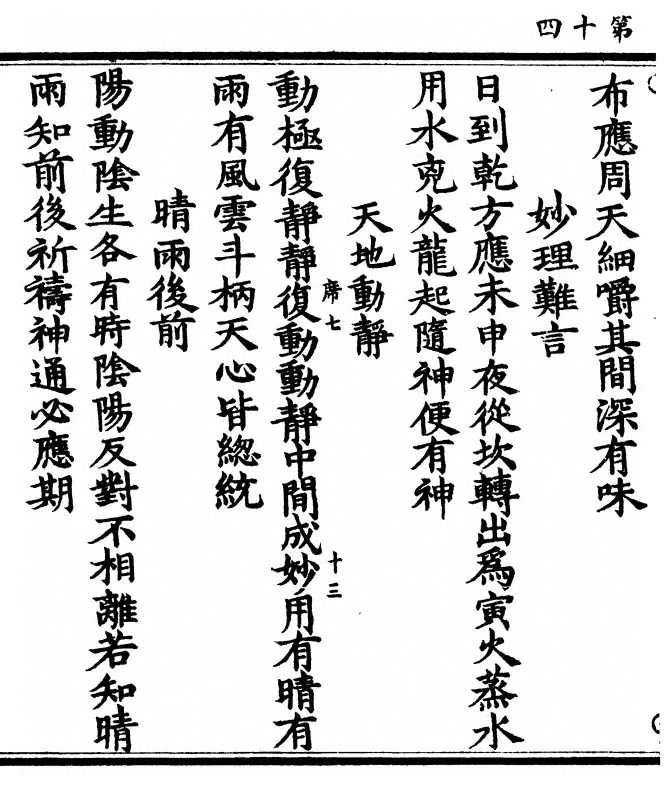 第十四
布應周天細嚼其間深有味
妙理難言
日到乾方應未申夜從坎轉出爲寅火蒸水
用水剋火龍起隨神便有神
天地動靜
席七
十三
動極復靜靜復動動靜中間成妙用有晴有
雨有風雲斗柄天心皆總統
晴雨後前
陽動陰生各有時陰陽反對不相離若知晴
雨知前後祈禱神通必應期